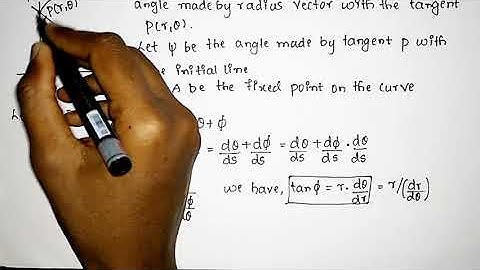 P(r,θ) angle made by radius vector with the tangent
P(r,θ).
Let ψ be the angle made by tangent p with
initial line
A be the fixed point on the curve
θ + ϕ
= dθ/ds + dϕ/ds = dθ/ds + dϕ/dθ · dθ/ds
we have, tanϕ = r · dθ/dr = r/(dr/dθ)